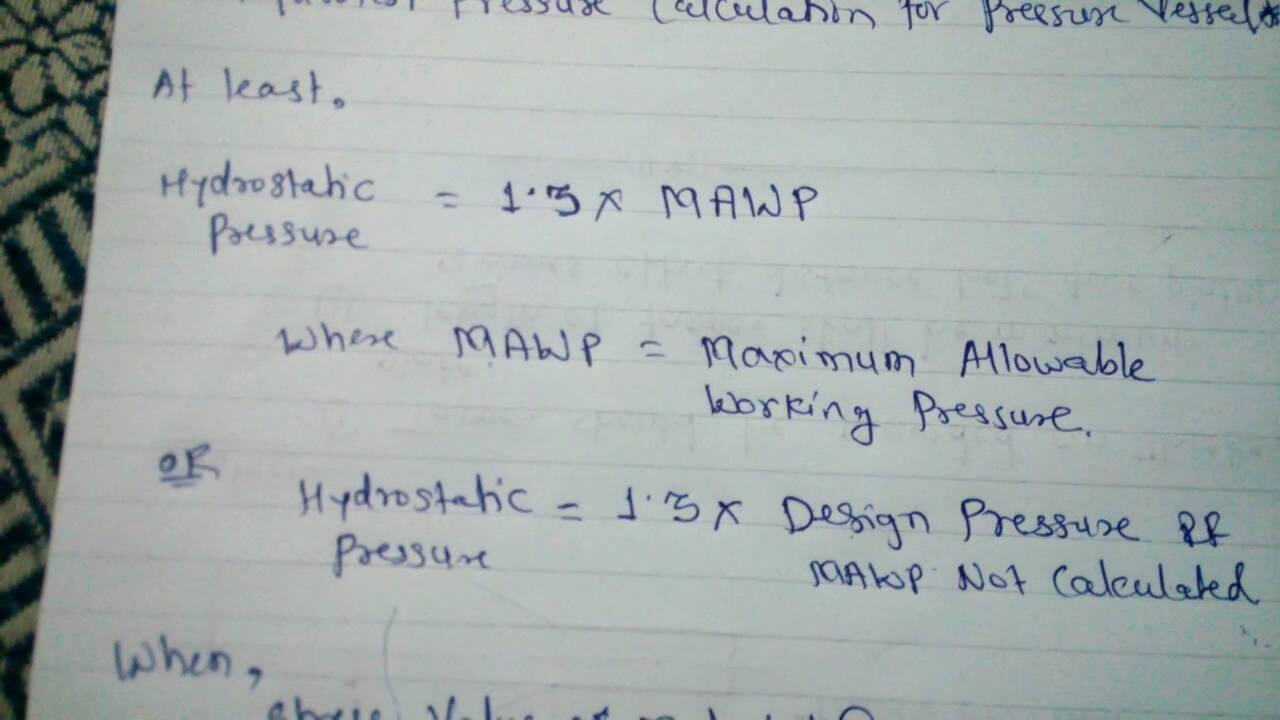 Pressure Calculation for Pressure Vessel
At least.
Hydrostatic = 1.3 x MAWP
Pressure
Where MAWP = Maximum Allowable
Working Pressure.
OR
Hydrostatic = 1.3 x Design Pressure If
Pressure MAWP Not Calculated
When,